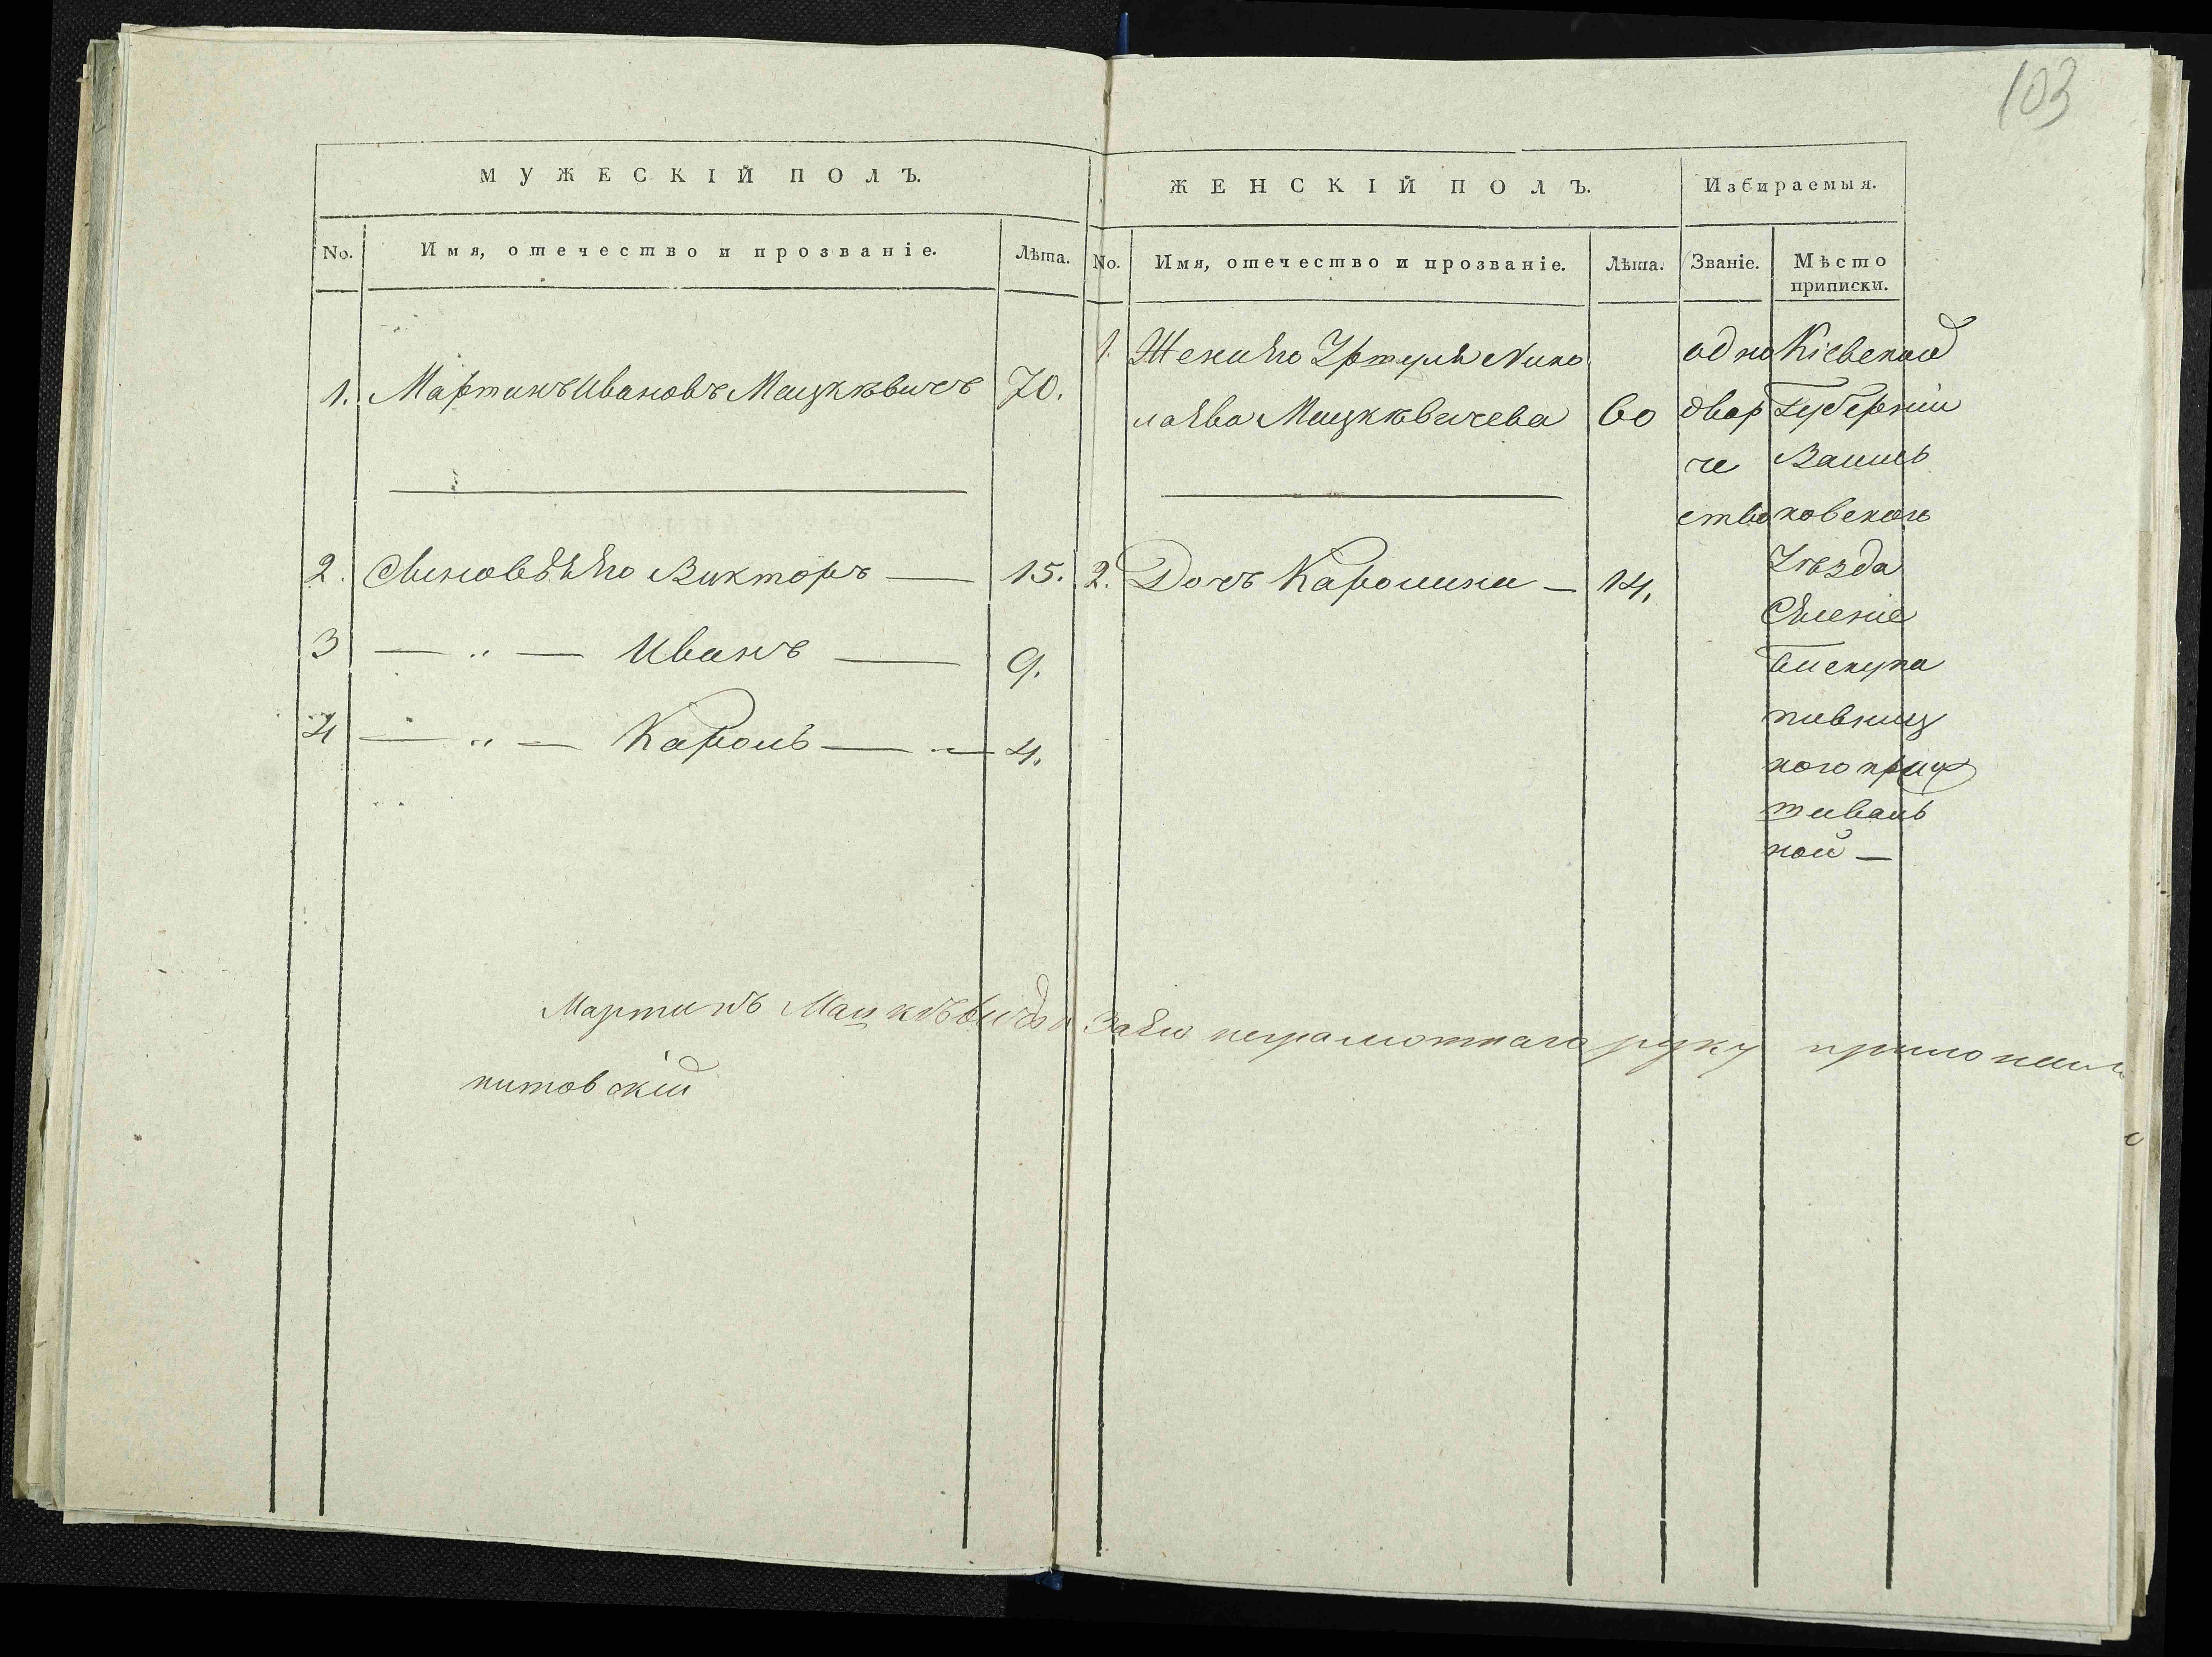 103
МУЖЕСКІЙ ПОЛЪ.
No. Имя, отечество и прозваніе. Лѣта.
1. Мартинъ Ивановъ Мацкѣвичъ 70.
2. Сыновья Его Викторъ — 15.
3 — „ — Иванъ — 9.
4 — „ — Кароль — 4.
ЖЕНСКІЙ ПОЛЪ. Избираемыя.
No. Имя, отечество и прозваніе. Лѣта. Званіе. Мѣсто
приписки.
1. Жена Его Уршуля Нико
лаева Мацкѣвичева 60
2. Дочь Каролина — 14.
одно
двор
че
ство
Кіевской
Губерніи
Василь
ковского
Уѣзда
Селеніе
пивниц
кого
ной —
Мартинъ Мацкѣвичъ а За Его неграмотнаго руку приложилъ